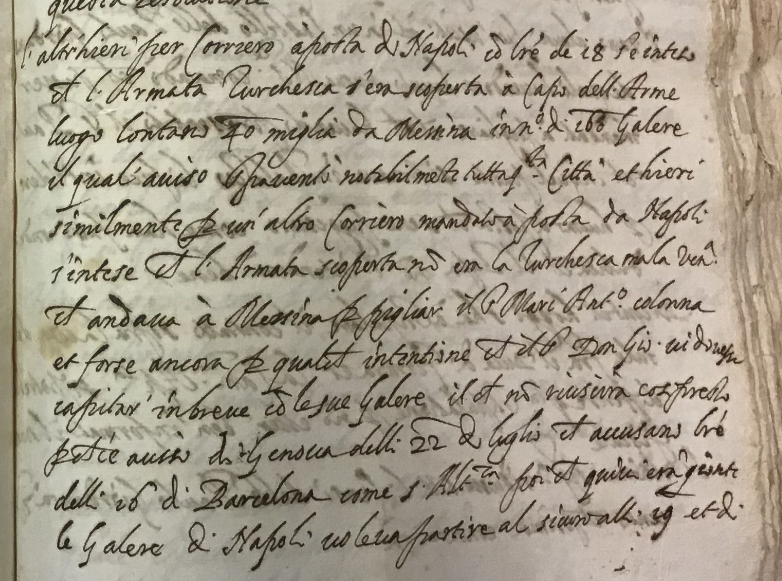 questa resolutione
l'altrhieri per Corriero aposta di Napoli cõ lrẽ de 18 s'e inteso
ch l'Armata Turchesca s'era scoperta à Capo dell'Arme
luogo lontano 40 miglia da Messina in nº. di 160 Galere
il qual' auiso spauentò notabilmẽte tutta q.ta Città et hieri
similmente ꝑ un' altro Corriero mandato à posta da Napoli
s'intese ch l'Armata scoperta nõ era la Turchesca ma la Ven.a
ch andaua à Messina ꝑ pigliar il S.r Marc' Ant.o colonna
et forse ancora ꝑ qualch intentione ch il S.r Don Gio. ui douesse
capitar' in breue cõ le sue Galere il ch nõ riuscirà cosi presto
ꝑche auisi di Genoua delli 22 di luglio ch accusano lrẽ
delli 16 di Barcelona come S. Alt.za poi ch quiui erã gionte
le Galere di Napoli uoleua partire al sicuro alli 19 et di